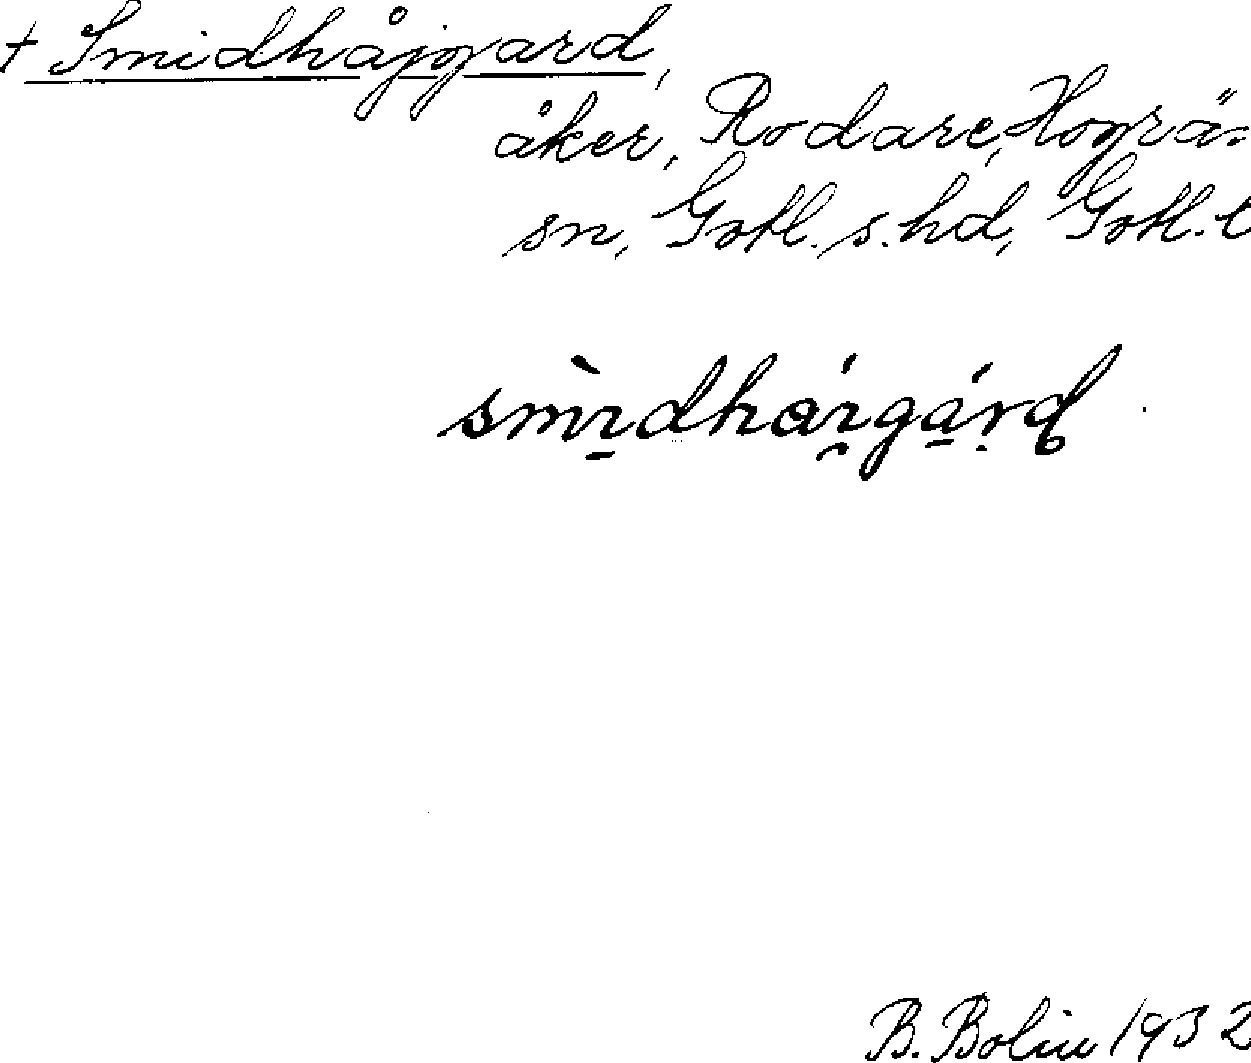 + Smidhåjgard,
åker, Rodare, Hogrän
sn, Gotl. s. hd, Gotl. l
B. Bolin 1932